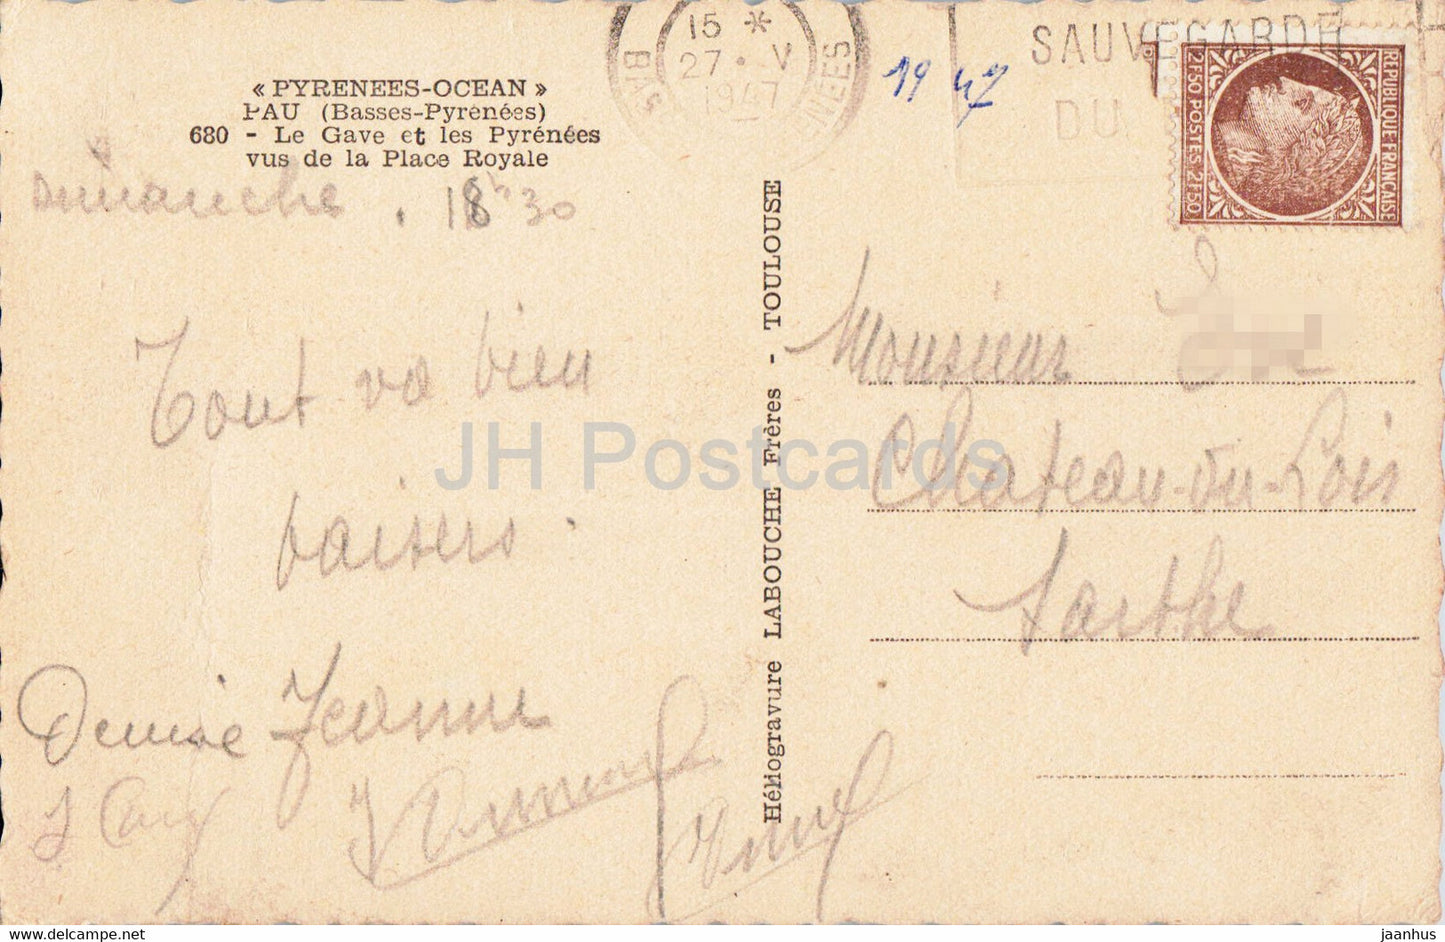 « PYRENEES-OCEAN »
PAU (Basses-Pyrénées)
680 - Le Gave et les Pyrénées
vus de la Place Royale
Dimanche . 18h30
Tout va bien
baisers.
Denise Jeanne
Héliogravure LABOUCHE Frères - TOULOUSE
15 *
27 · V
1947
19 47
SAUVEGARDE
DU
REPUBLIQUE FRANÇAISE
2F50 POSTES 2F50
Monsieur
Chateau-du-Loir
Sarthe
JH Postcards
www.delcampe.net
jaanhus